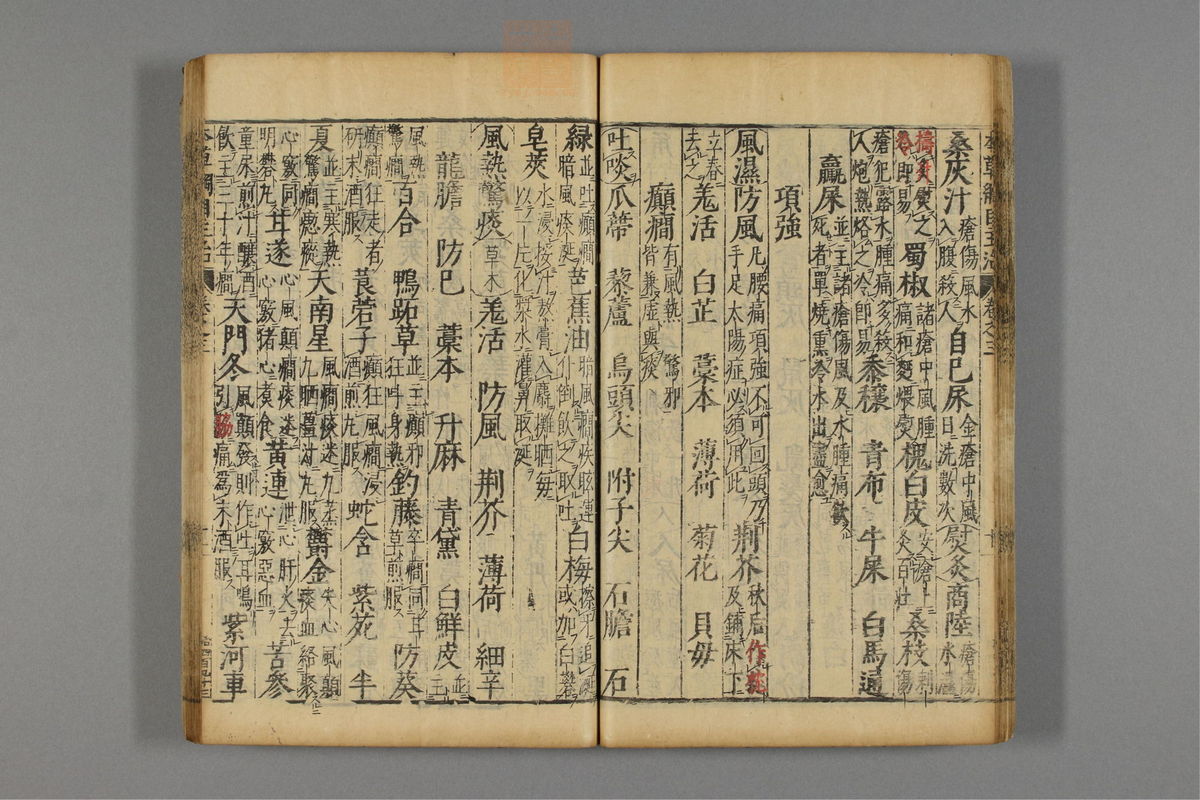 桑灰汁 瘡傷風水入腹殺人 自己尿 金瘡中風日洗數次 熨灸 商陸 瘡傷水濕
擣炙熨之冷即易 蜀椒 諸瘡中風腫痛和麪煨熨 槐白皮 安瘡上灸百壯 桑枝 刺傷
瘡犯露水腫痛多殺人炮熱烙之冷即易 黍穰 青布 牛屎 白馬通
驘屎 並主諸瘡傷風及水腫痛欲死者單燒熏令水出盡愈
項強
風濕 防風 凡腰痛項強不可回頭乃手足太陽症必須用此 荊芥 秋后作枕及鋪床下
立春去之 羌活 白芷 藁本 薄荷 菊花 貝母
癲癇 有風熱驚邪皆兼虛與痰
吐痰 瓜蒂 藜蘆 烏頭尖 附子尖 石膽 石
綠 並吐癲癇暗風痰涎 芭蕉油 暗風癇疾眩運仆倒飲之取吐 白梅 擦牙追涎或加白礬
皂莢 水浸挼汁熬膏入麝攤晒每以一片化漿水灌鼻取涎
風熱驚痰 草木 羌活 防風 荊芥 薄荷 細辛
龍膽 防己 藁本 升麻 青黛 白鮮皮 並主
風熱驚癇 百合 鴨跖草 並主癲邪狂叫身熱 釣藤 卒癇同甘草煎服 防葵
癲癇狂走者研末酒服 莨菪子 癲狂風癇浸酒煎丸服 蛇含 紫菀 半
夏 並主寒熱驚癇瘛瘲 天南星 風癇痰迷九蒸九晒薑汁丸服 鬱金 失心風癲痰血絡聚
心竅同明礬丸 甘遂 心風癲癇痰迷心竅猪心煮食 黃連 泄心肝火去心竅惡血 苦參
童尿煎汁釀酒飲主三十年癇 天門冬 風癲發則作吐耳鳴引脇痛為末酒服 紫河車